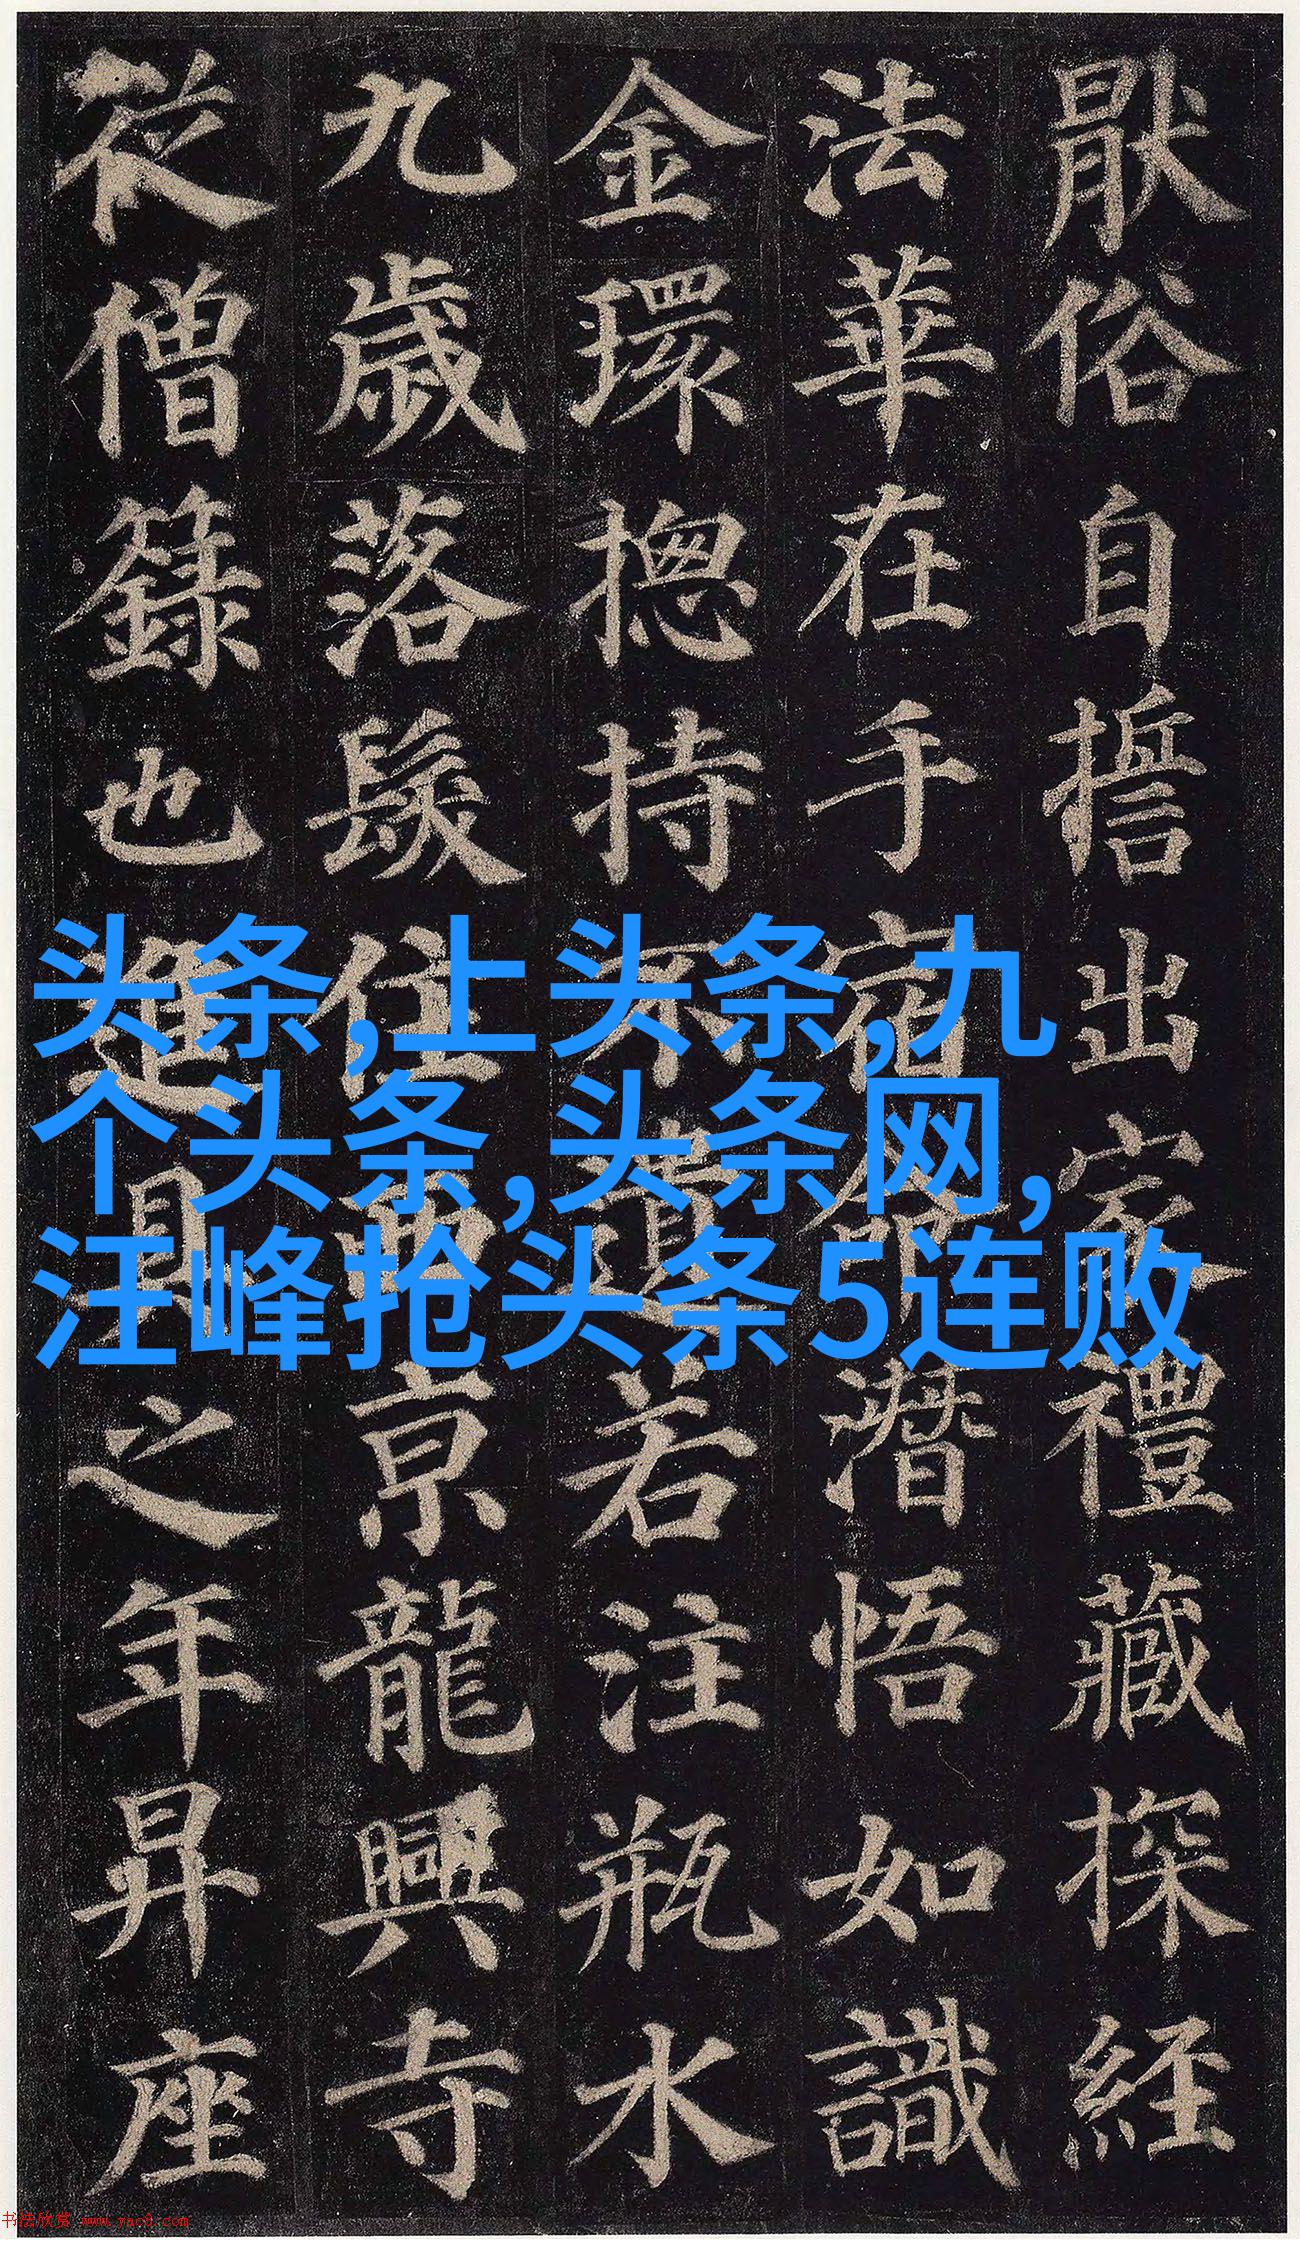 猒俗自誓出家禮藏探經
法華在手宿命潛悟如識
金環揔持不遺若注瓶水
九歲落髮住西京龍興寺
從僧籙也進具之年昇座
头条,上头条,九
个头条,头条网,
汪峰抢头条5连败
书法欣赏 www.yac8.com